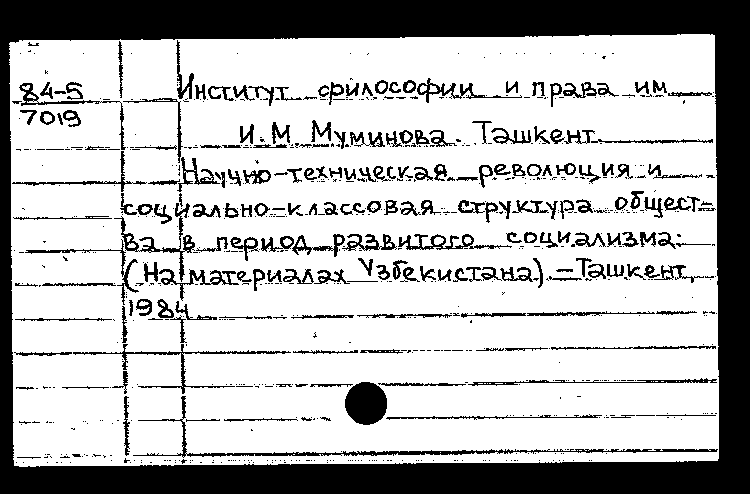 84-5
7019
Институт философии и права им.
И.М. Муминова. Ташкент.
Научно-техническая революция и
социально-классовая структура общест-
ва в период развитого социализма:
(На материалах Узбекистана).-Ташкент,
1984.